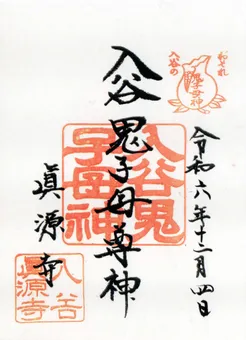 おそれ
入谷の
鬼子母神
令和六年十二月四日
入谷鬼子母尊神
入谷鬼
子母神
眞源寺
入谷
眞源寺